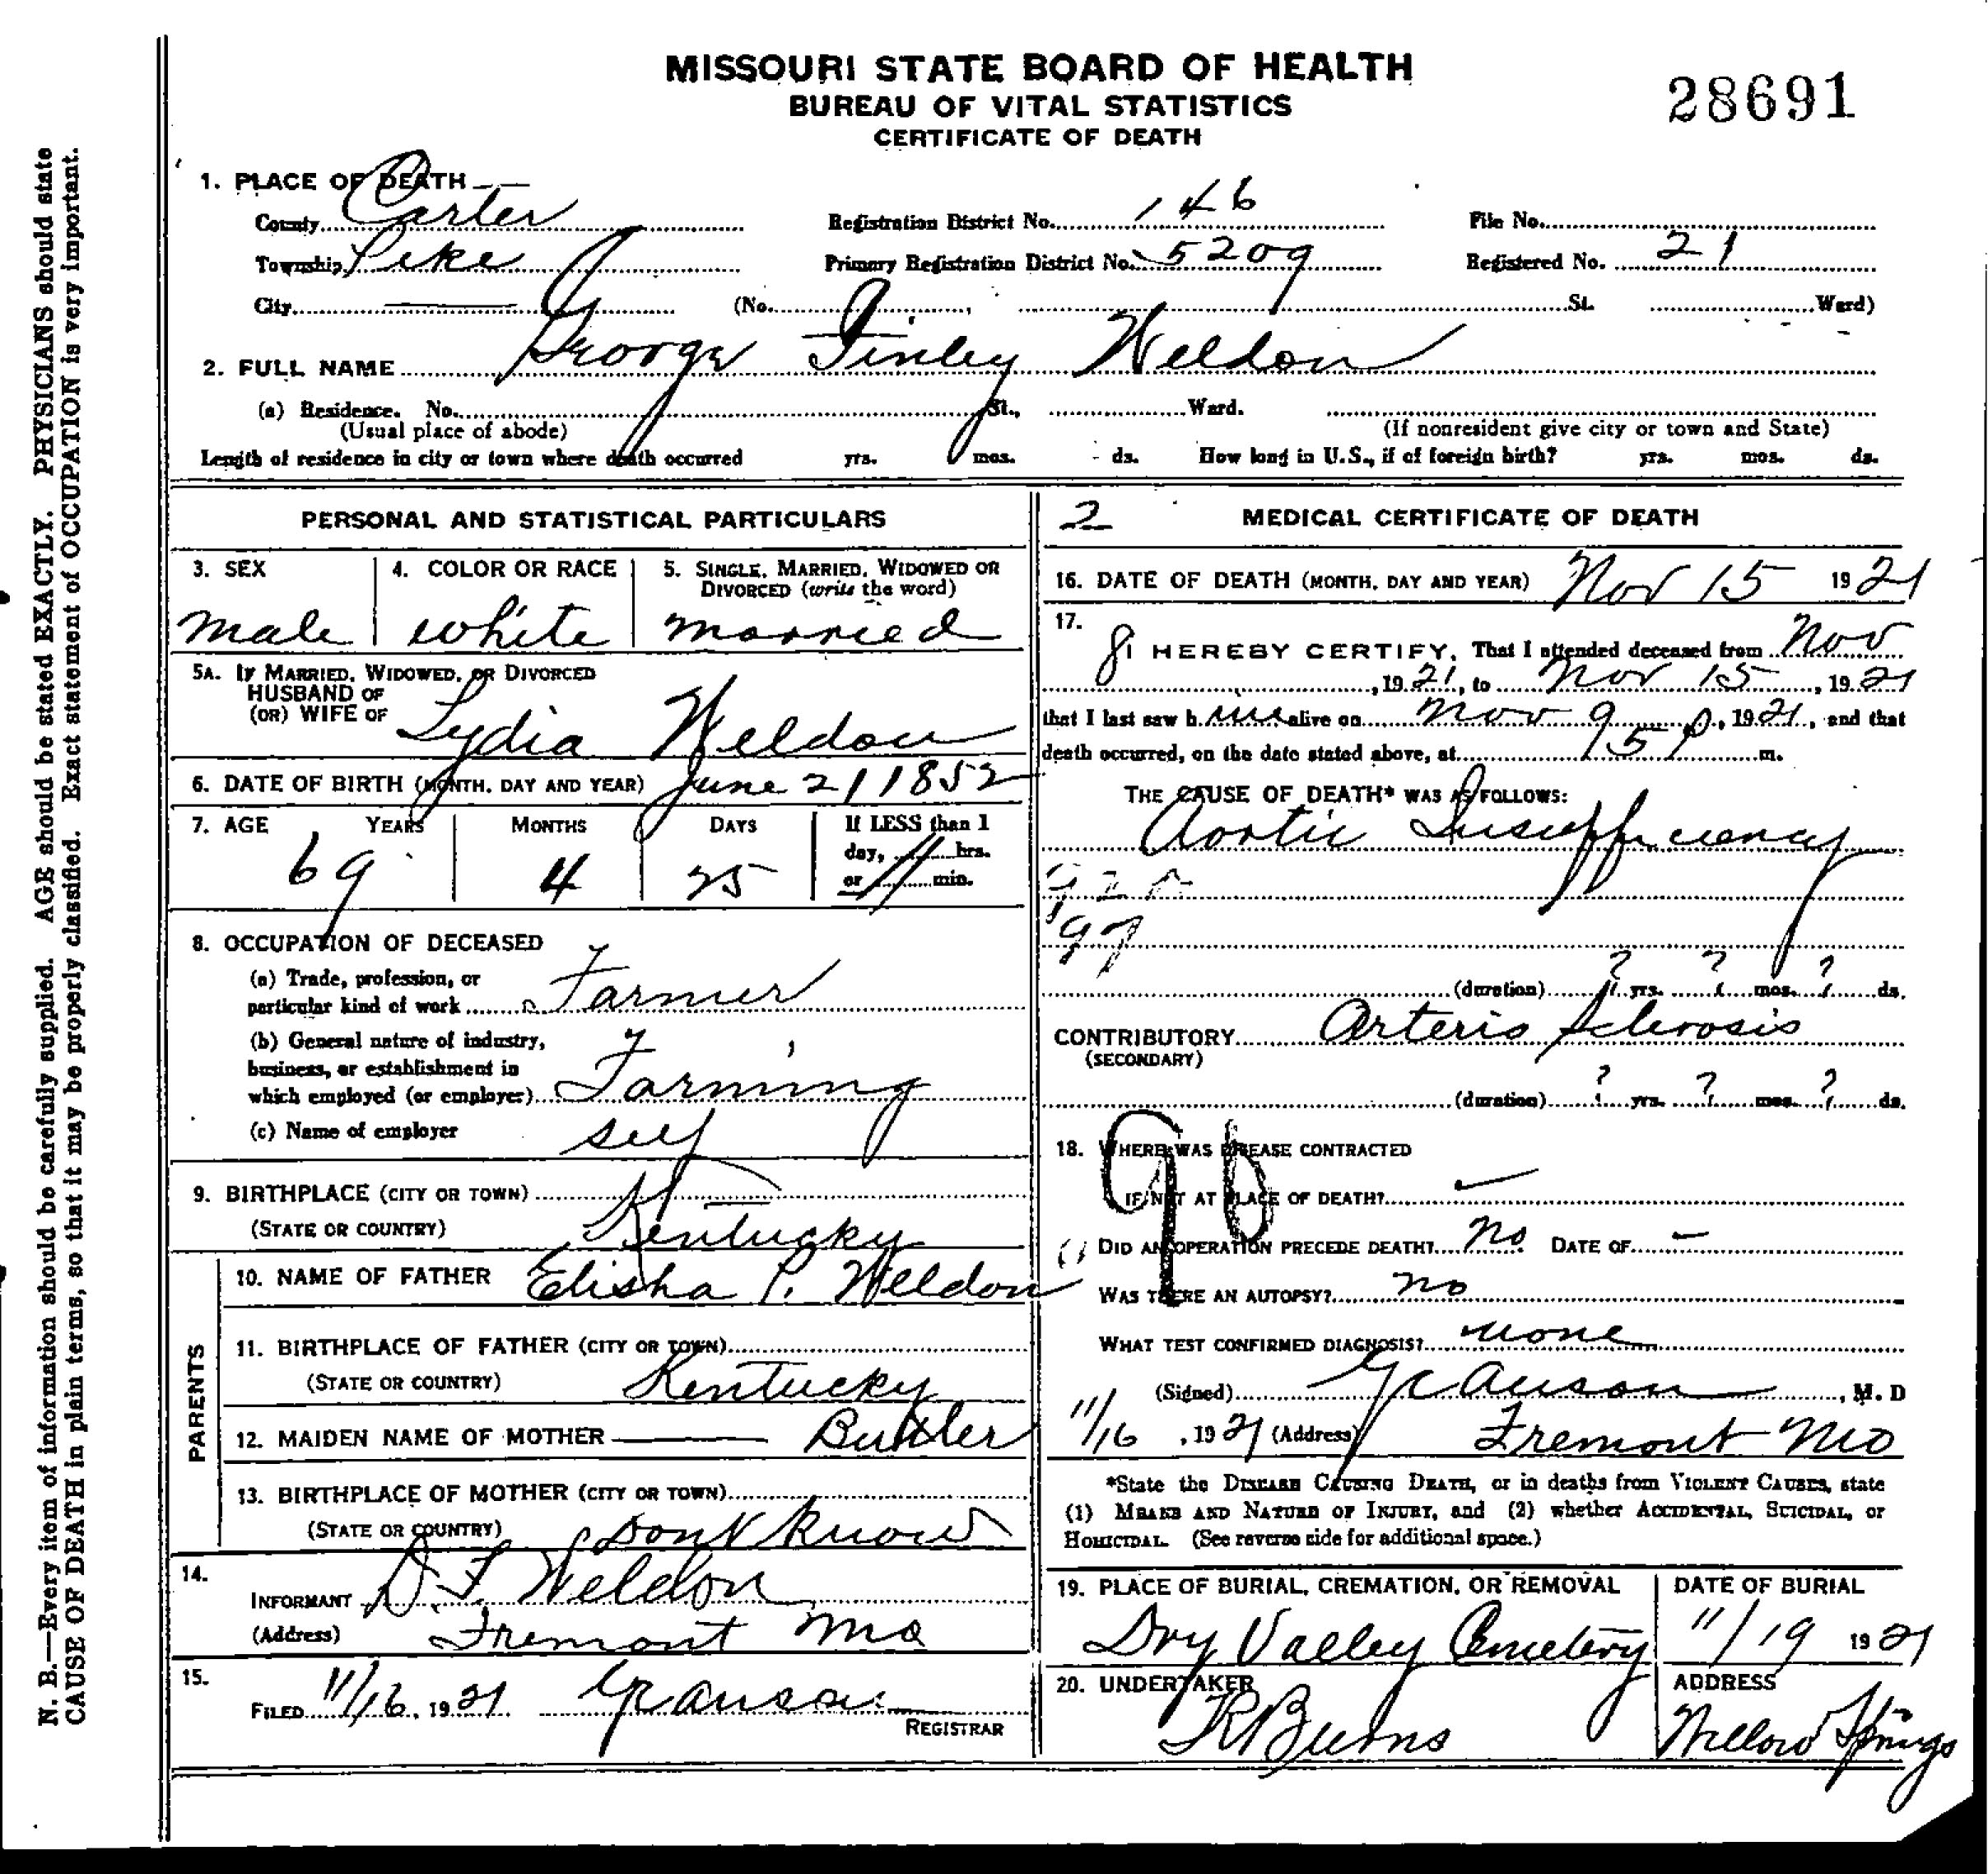 MISSOURI STATE BOARD OF HEALTH
BUREAU OF VITAL STATISTICS
CERTIFICATE OF DEATH
28691
1. PLACE OF DEATH
County Carter Registration District No. 146 File No.
Township Pike Primary Registration District No. 5209 Registered No. 21
City (No. St. Ward)
2. FULL NAME George Finley Weldon
(a) Residence. No. St., Ward.
(Usual place of abode) (If nonresident give city or town and State)
Length of residence in city or town where death occurred yrs. mos. ds. How long in U.S., if of foreign birth? yrs. mos. ds.
PERSONAL AND STATISTICAL PARTICULARS
3. SEX 4. COLOR OR RACE 5. SINGLE, MARRIED, WIDOWED OR
DIVORCED (write the word)
male white married
5A. IF MARRIED, WIDOWED, OR DIVORCED
HUSBAND OF
(OR) WIFE OF Lydia Weldon
6. DATE OF BIRTH (MONTH, DAY AND YEAR) June 21 1852
7. AGE YEARS MONTHS DAYS If LESS than 1
day, hrs.
69 4 25 or min.
8. OCCUPATION OF DECEASED
(a) Trade, profession, or
particular kind of work Farmer
(b) General nature of industry,
business, or establishment in
which employed (or employer) Farming
(c) Name of employer self
9. BIRTHPLACE (CITY OR TOWN)
(STATE OR COUNTRY) Kentucky
PARENTS
10. NAME OF FATHER Elisha P. Weldon
11. BIRTHPLACE OF FATHER (CITY OR TOWN)
(STATE OR COUNTRY) Kentucky
12. MAIDEN NAME OF MOTHER Butler
13. BIRTHPLACE OF MOTHER (CITY OR TOWN)
(STATE OR COUNTRY) Dont Know
14.
INFORMANT D. F. Weldon
(Address) Fremont Mo
15.
FILED 11/16, 1921
REGISTRAR
2 MEDICAL CERTIFICATE OF DEATH
16. DATE OF DEATH (MONTH, DAY AND YEAR) Nov 15 1921
17.
I HEREBY CERTIFY, That I attended deceased from Nov
8, 1921, to Nov 15, 1921
that I last saw him alive on Nov 9, 1921, and that
death occurred, on the date stated above, at m.
THE CAUSE OF DEATH* WAS AS FOLLOWS:
Aortic Insufficiency
97
(duration) ? yrs. ? mos. ? ds.
CONTRIBUTORY Arterio Sclerosis
(SECONDARY)
(duration) ? yrs. ? mos. ? ds.
18. WHERE WAS DISEASE CONTRACTED
IF NOT AT PLACE OF DEATH? —
DID AN OPERATION PRECEDE DEATH? No DATE OF —
WAS THERE AN AUTOPSY? no
WHAT TEST CONFIRMED DIAGNOSIS? none
(Signed) , M. D
11/16, 1921 (Address) Fremont Mo
*State the DISEASE CAUSING DEATH, or in deaths from VIOLENT CAUSES, state
(1) MEANS AND NATURE OF INJURY, and (2) whether ACCIDENTAL, SUICIDAL, or
HOMICIDAL. (See reverse side for additional space.)
19. PLACE OF BURIAL, CREMATION, OR REMOVAL DATE OF BURIAL
Dry Valley Cemetery 11/19 1921
20. UNDERTAKER ADDRESS
Burns Willow Springs
N. B.—Every item of information should be carefully supplied. AGE should be stated EXACTLY. PHYSICIANS should state
CAUSE OF DEATH in plain terms, so that it may be properly classified. Exact statement of OCCUPATION is very important.